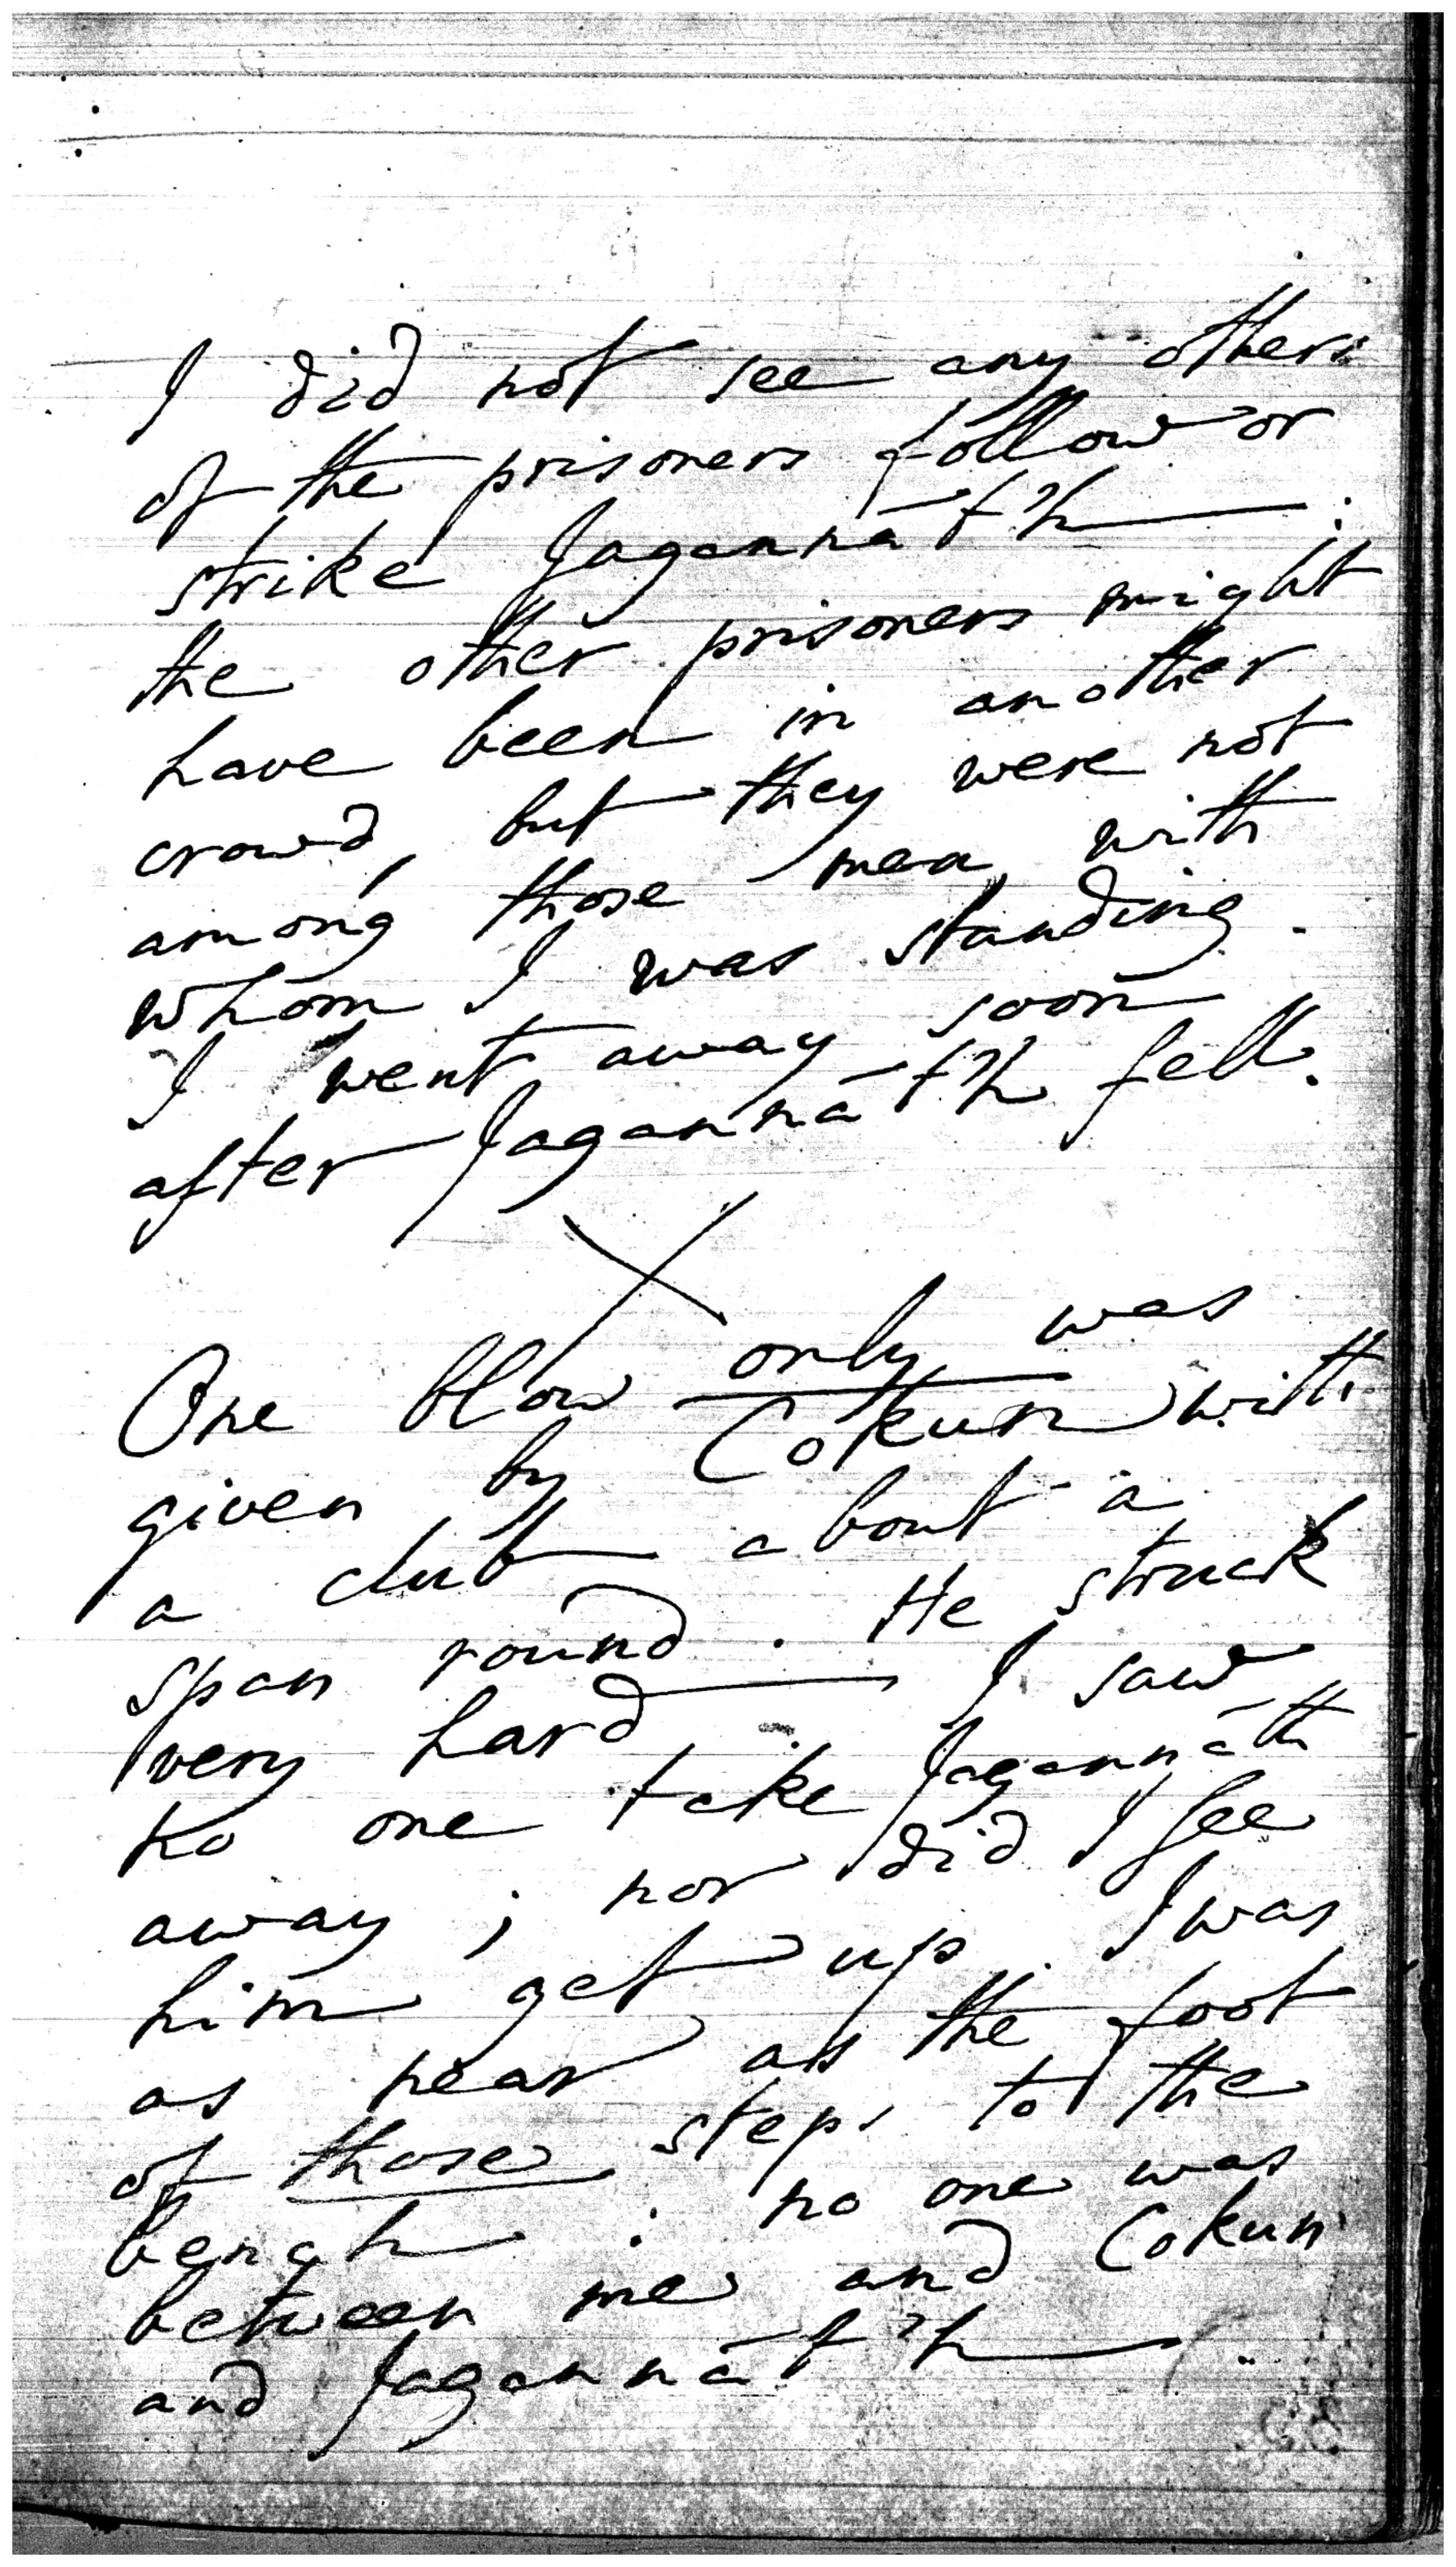 I did not see any others
of the prisoners follow or
strike Jagannáth :
the other prisoners might
have been in another
crowd, but they were not
among those men with
whom I was standing.
I went away soon
after Jagannáth fell.
X
One blow only was
given by Cokun with
a club about a
span round. He struck
very hard. I saw
no one take Jagannáth
away ; nor did I see
him get up. I was
as near as the foot
of those steps to the
bench : no one was
between me and Cokun
and Jagannáth